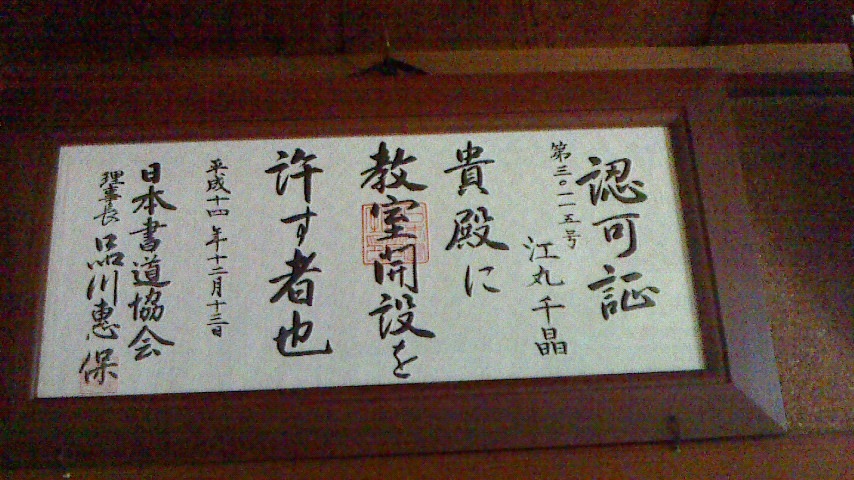 認可証
第三〇一一五号
江丸千晶
貴殿に
教室開設を
許す者也
平成十四年十二月十三日
日本書道協会
理事長 品川惠保